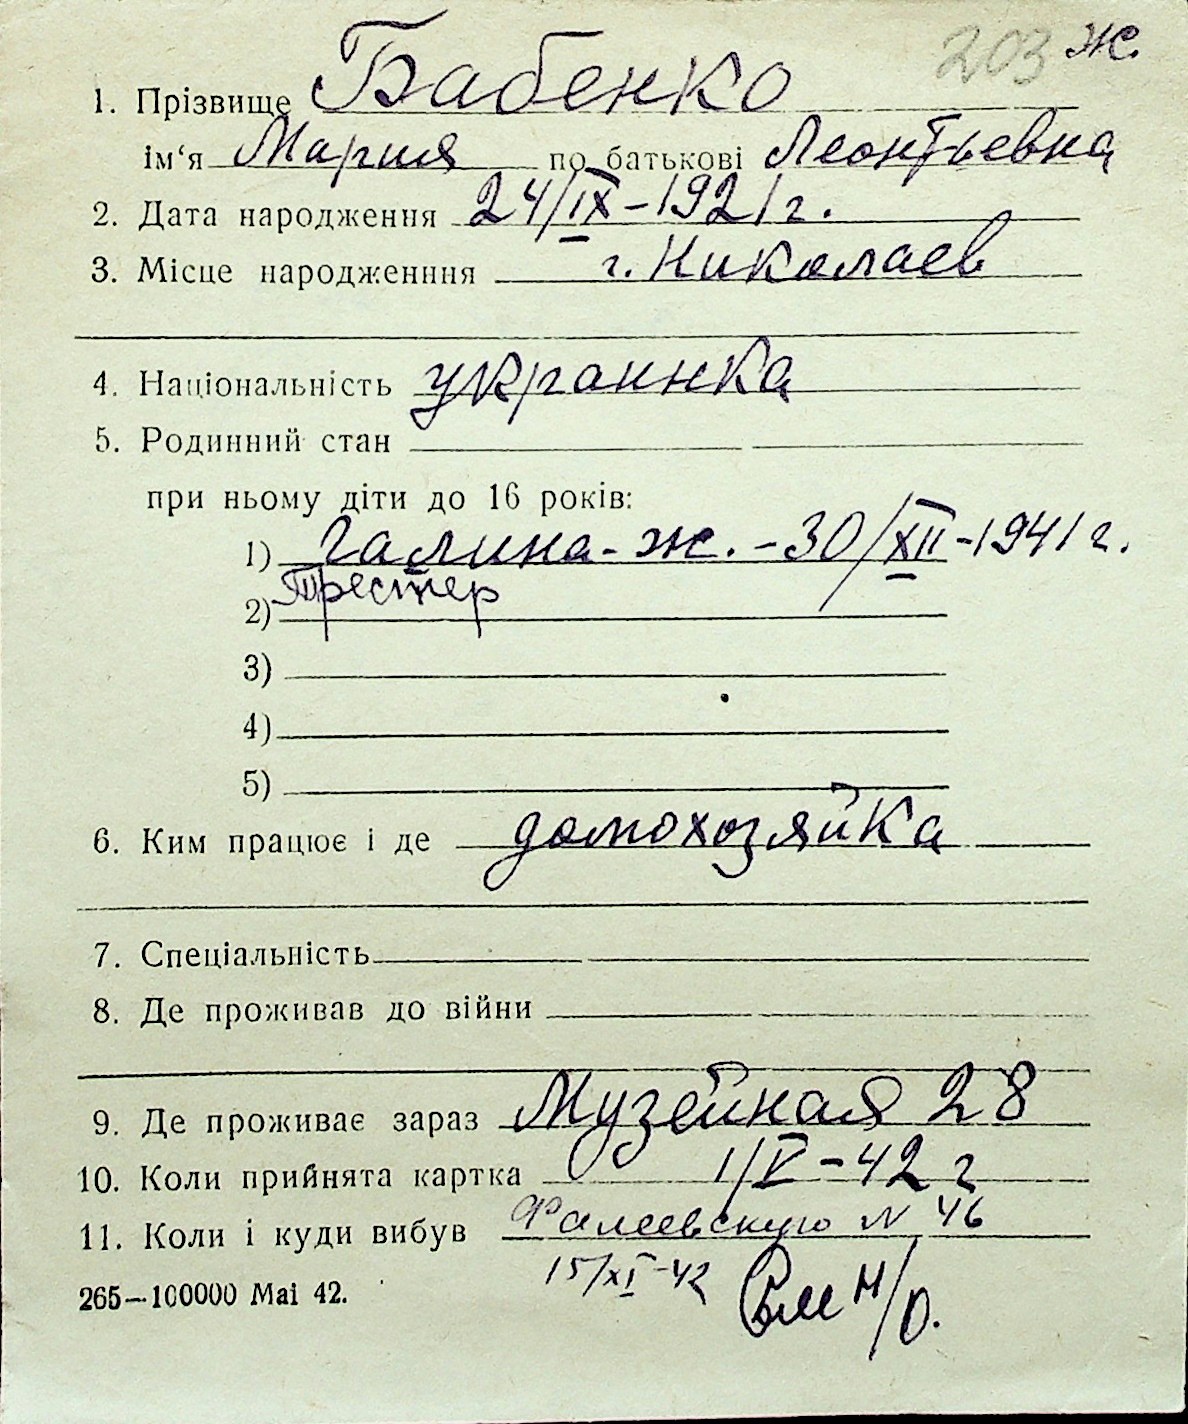 203 ж.
1. Прізвище Бабенко
ім'я Мария по батькові Леонтьевна
2. Дата народження 24/IX-1921г.
3. Місце народженння г. Николаев
4. Національність украинка
5. Родинний стан
при ньому діти до 16 років:
1) Галина - ж. - 30/XII-1941г.
Трестер
2)
3)
4)
5)
6. Ким працює і де домохозяйка
7. Спеціальність
8. Де проживав до війни
9. Де проживає зараз Музейная 28
10. Коли прийнята картка 1/V-42 г
11. Коли і куди вибув Фалеевскую N 46
15/XI-42 н/о.
265—100000 Маі 42.